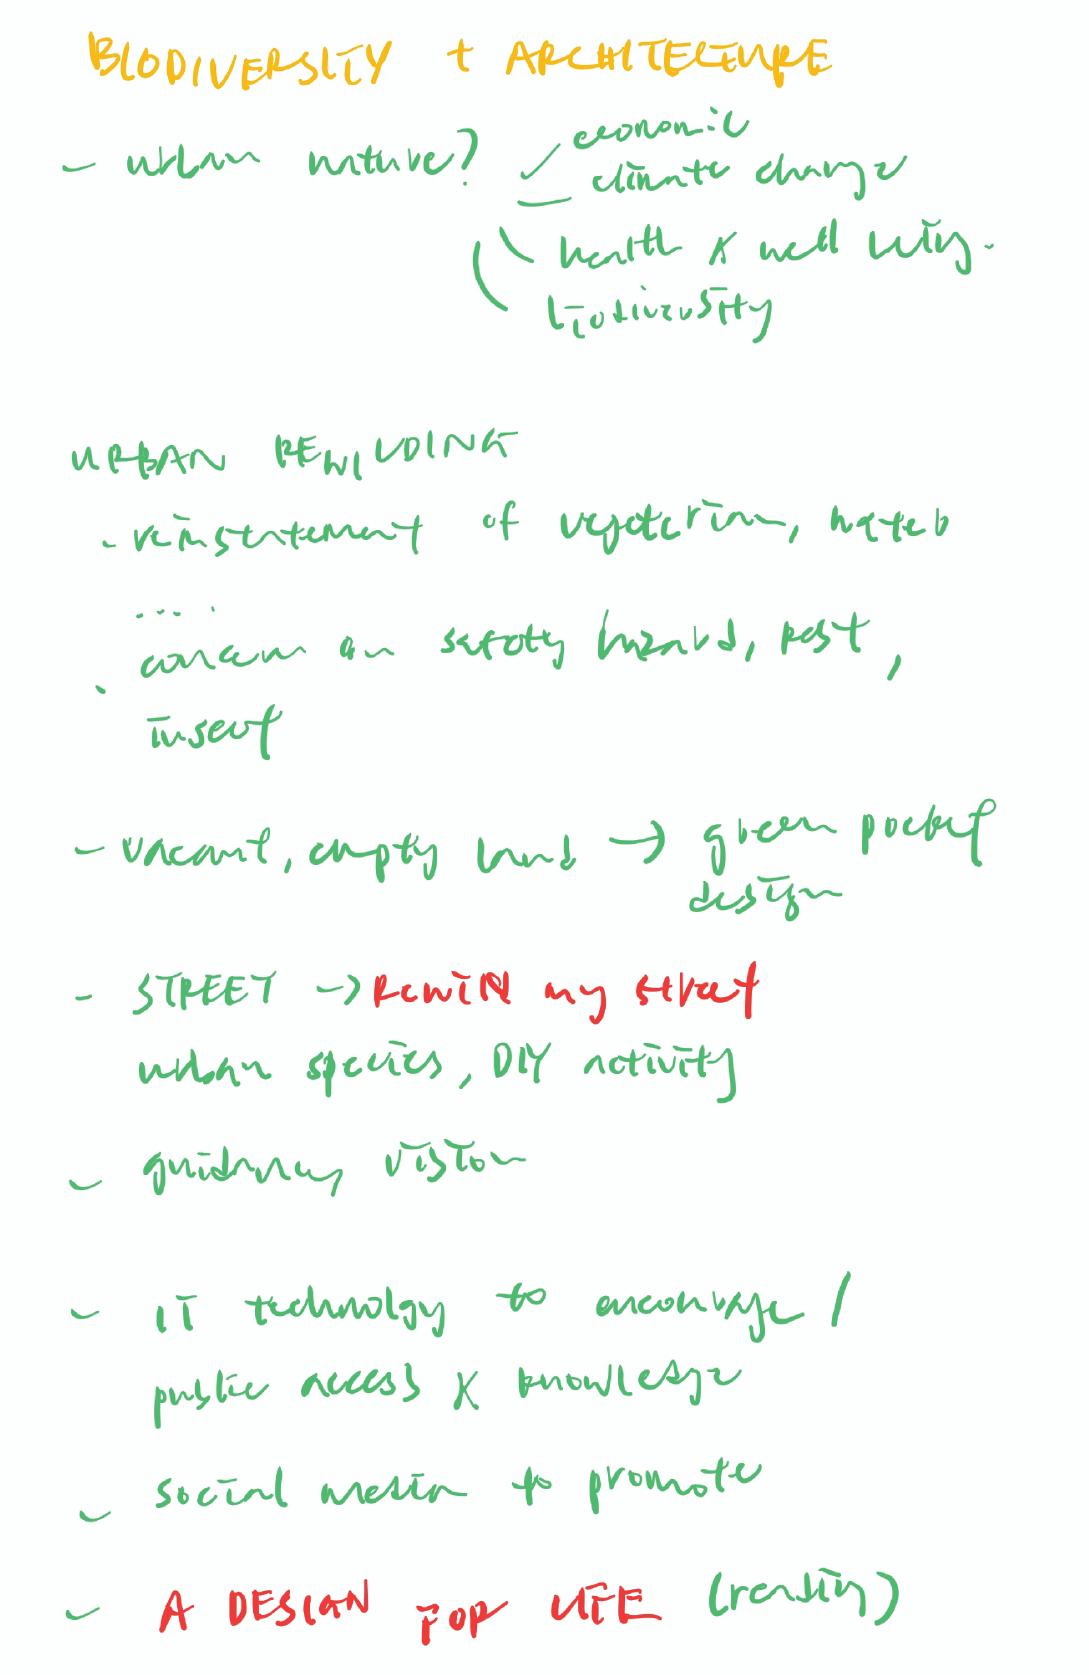 BIODIVERSITY + ARCHITECTURE
- urban nature? economic
climate change
health & well being.
biodiversity
URBAN REWILDING
. reinstatement of vegetation,
....
. concern on safety hazard, pest,
insect
- vacant, empty land → green pocket
design
- STREET → Rewild my street
urban species, DIY activity
- vision
- IT technology to encourage /
public access & knowledge
- social media to promote
- A DESIGN FOR LIFE (reading)